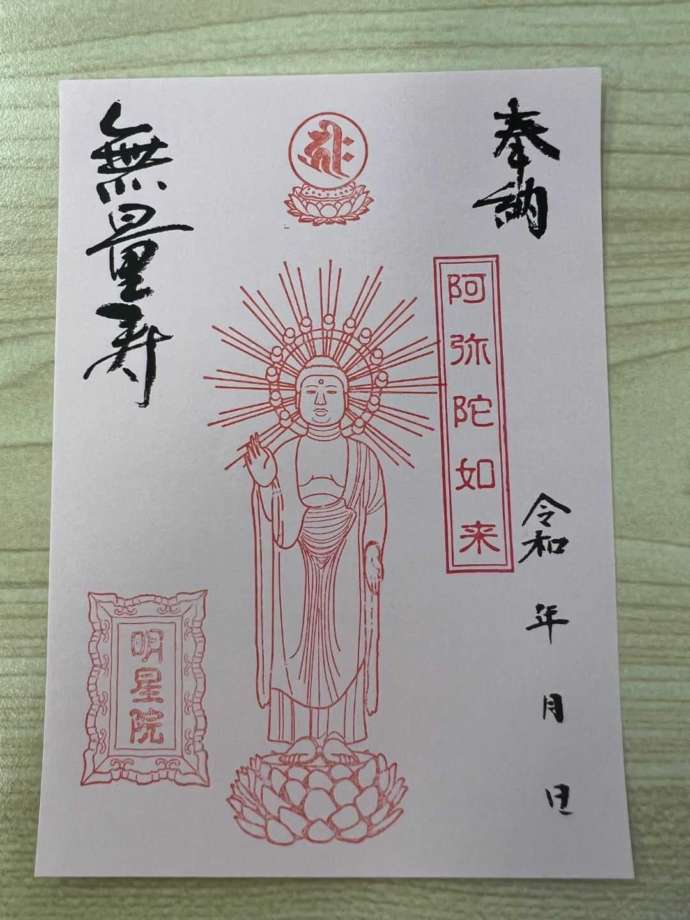 奉納
阿弥陀如来
令和 年 月 日
𑖮𑖿𑖨𑖱𑖾
無量寿
明星院